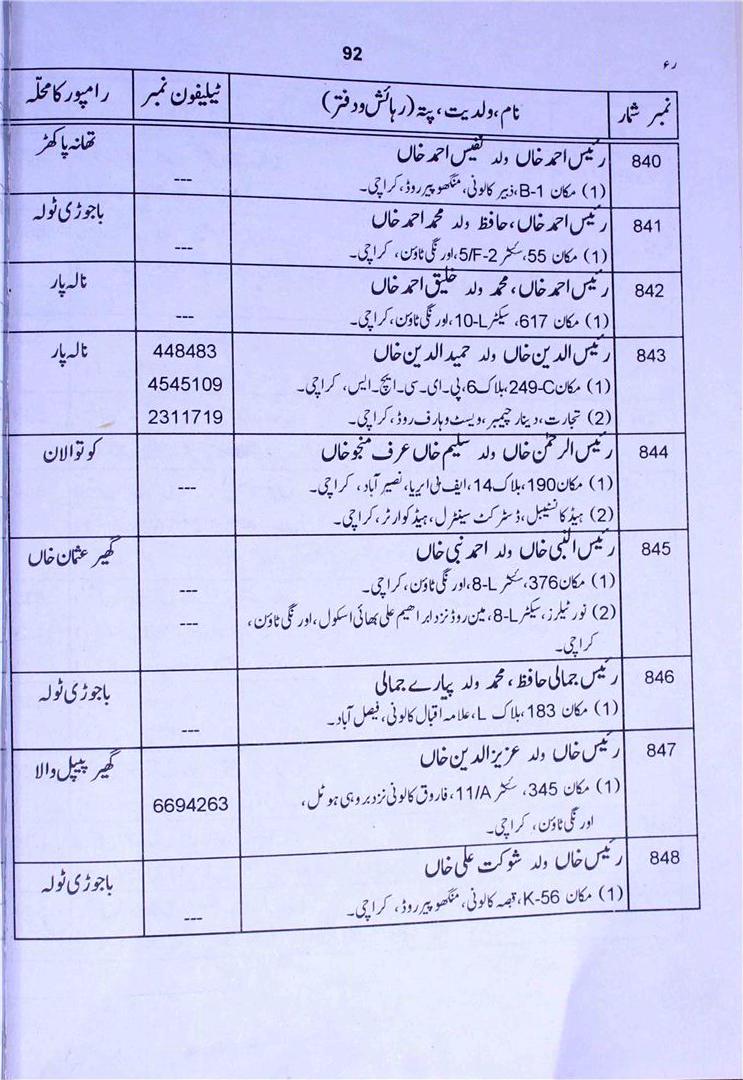 92
رء
نمبر شمار | نام، ولدیت، پتہ (رہائش و دفتر) | ٹیلیفون نمبر | رامپور کا محلّہ
840 | رئیس احمد خاں ولد نفیس احمد خاں | تھانہ پاکھڑ
(1) مکان B-1، زبیر کالونی، منگھو پیر روڈ، کراچی۔ | ---
841 | رئیس احمد خاں، حافظ ولد محمد احمد خاں | باجوڑی ٹولہ
(1) مکان 55، سکٹر 5/F-2، اورنگی ٹاؤن، کراچی۔ | ---
842 | رئیس احمد خاں، محمد ولد خلیق احمد خاں | نالہ پار
(1) مکان 617، سیکٹر 10-L، اورنگی ٹاؤن، کراچی۔ | ---
843 | رئیس الدین خاں ولد حمید الدین خاں | 448483 | نالہ پار
(1) مکان 249-C، بلاک 6، پی۔ای۔سی۔ایچ۔ایس، کراچی۔ | 4545109
(2) تجارت، دینار چیمبر، ویسٹ وہارف روڈ، کراچی۔ | 2311719
844 | رئیس الرحمٰن خاں ولد سلیم خاں عرف منجو خاں | کوتوالان
(1) مکان 190، بلاک 14، ایف بی ایریا، نصیر آباد، کراچی۔ | ---
(2) ہیڈ کانسٹیبل، ڈسٹرکٹ سینٹرل، ہیڈ کوارٹر، کراچی۔
845 | رئیس النبی خاں ولد احمد نبی خاں | گھیر عثمان خاں
(1) مکان 376، سکٹر 8-L، اورنگی ٹاؤن، کراچی۔ | ---
(2) نور ٹیلرز، سیکٹر 8-L، مین روڈ نزد ابراھیم علی بھائی اسکول، اورنگی ٹاؤن، | ---
کراچی۔
846 | رئیس جمالی حافظ، محمد ولد پیارے جمالی | باجوڑی ٹولہ
(1) مکان 183، بلاک L، علامہ اقبال کالونی، فیصل آباد۔ | ---
847 | رئیس خاں ولد عزیز الدین خاں | گھیر پیپل والا
(1) مکان 345، سکٹر 11/A، فاروق کالونی نزد بروہی ہوٹل، | 6694263
اورنگی ٹاؤن، کراچی۔
848 | رئیس خاں ولد شوکت علی خاں | باجوڑی ٹولہ
(1) مکان K-56، قصبہ کالونی، منگھو پیر روڈ، کراچی۔ | ---